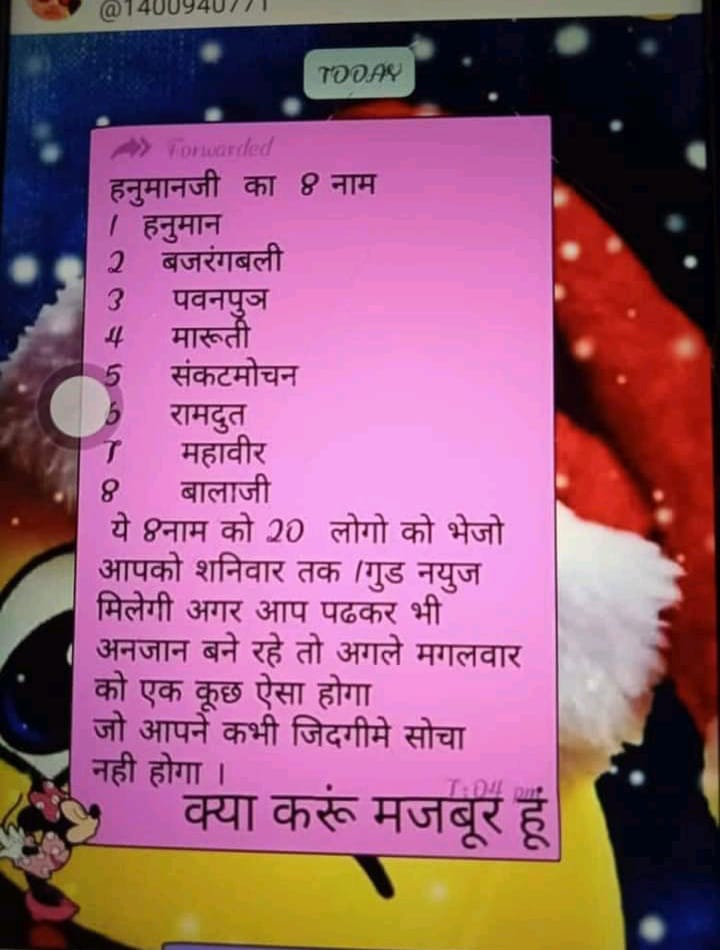 @1400940771
TODAY
Forwarded
हनुमानजी का 8 नाम
1 हनुमान
2 बजरंगबली
3 पवनपुञ
4 मारूती
5 संकटमोचन
6 रामदुत
7 महावीर
8 बालाजी
ये 8नाम को 20 लोगो को भेजो
आपको शनिवार तक 1गुड नयुज
मिलेगी अगर आप पढकर भी
अनजान बने रहे तो अगले मगलवार
को एक कूछ ऐसा होगा
जो आपने कभी जिदगीमे सोचा
नही होगा ।
7:04 pm
क्या करूं मजबूर हूं